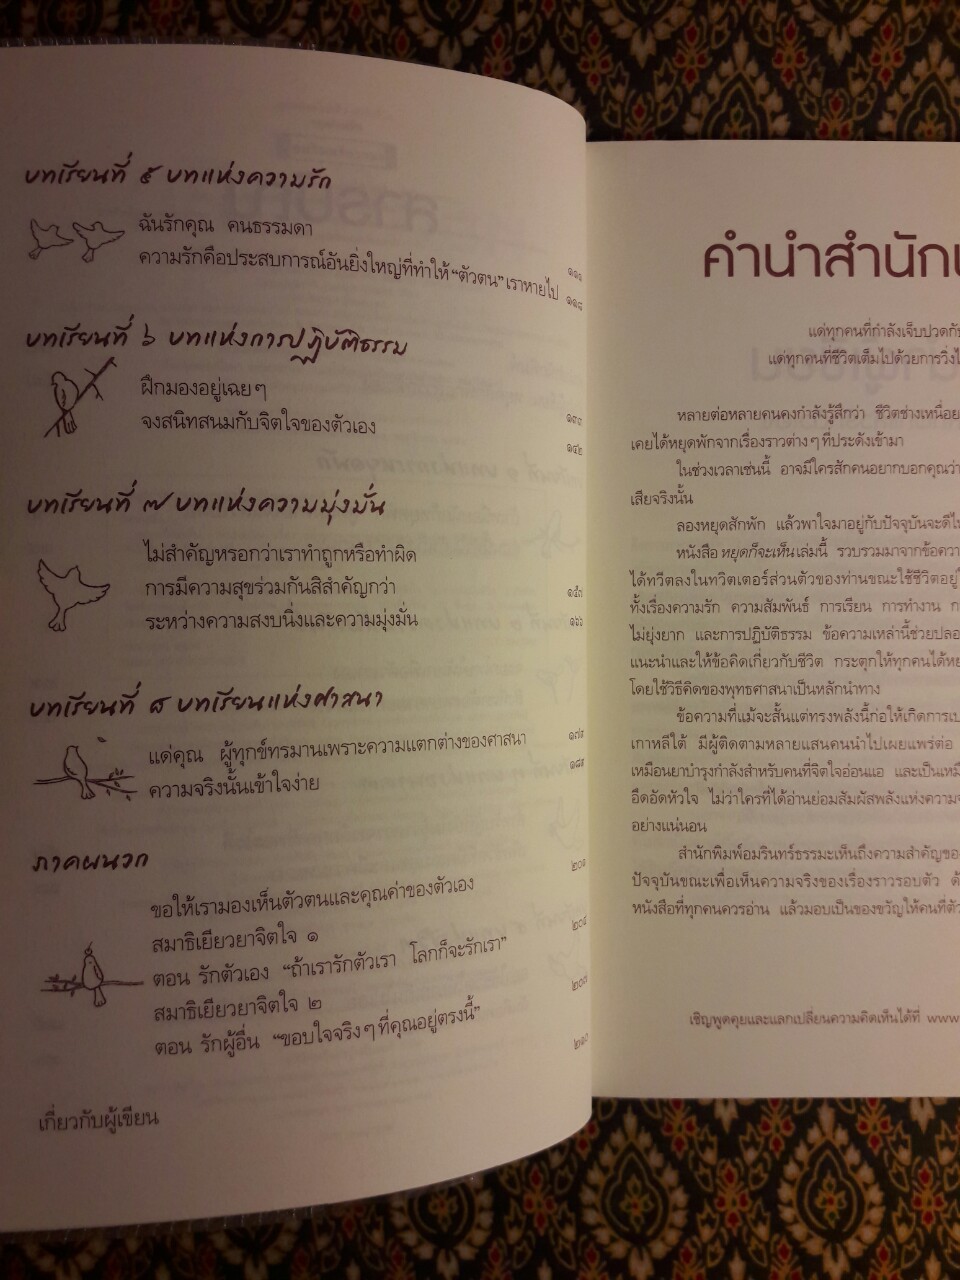 บทเรียนที่ ๕ บทแห่งความรัก
ฉันรักคุณ คนธรรมดา ๑๑๑
ความรักคือประสบการณ์อันยิ่งใหญ่ที่ทำให้ “ตัวตน” เราหายไป ๑๑๘
บทเรียนที่ ๖ บทแห่งการปฏิบัติธรรม
ฝึกมองอยู่เฉยๆ ๑๓๓
จงสนิทสนมกับจิตใจของตัวเอง ๑๔๒
บทเรียนที่ ๗ บทแห่งความมุ่งมั่น
ไม่สำคัญหรอกว่าเราทำถูกหรือทำผิด
การมีความสุขร่วมกันสิสำคัญกว่า ๑๕๓
ระหว่างความสงบนิ่งและความมุ่งมั่น ๑๖๖
บทเรียนที่ ๘ บทเรียนแห่งศาสนา
แด่คุณ ผู้ทุกข์ทรมานเพราะความแตกต่างของศาสนา ๑๗๕
ความจริงนั้นเข้าใจง่าย ๑๘๙
ภาคผนวก
ขอให้เรามองเห็นตัวตนและคุณค่าของตัวเอง ๒๐๑
สมาธิเยียวยาจิตใจ ๑
ตอน รักตัวเอง “ถ้าเรารักตัวเรา โลกก็จะรักเรา” ๒๐๔
สมาธิเยียวยาจิตใจ ๒
ตอน รักผู้อื่น “ขอบใจจริงๆ ที่คุณอยู่ตรงนี้” ๒๐๗
เกี่ยวกับผู้เขียน
คำนำสำนัก
แด่ทุกคนที่กำลังเจ็บปวด
แด่ทุกคนที่ชีวิตเต็มไปด้วยการ
หลายต่อหลายคนคงกำลังรู้สึกว่า ชีวิตช่างเหนื่อย
เคยได้หยุดพักจากเรื่องราวต่างๆ ที่ประดังเข้ามา
ในช่วงเวลาเช่นนี้ อาจมีใครสักคนอยากบอกคุณว่า
เสียจริงนั้น
ลองหยุดสักพัก แล้วพาใจมาอยู่กับปัจจุบันจะดี
หนังสือ หยุดก็จะเห็น เล่มนี้ รวบรวมมาจาก
ได้ทวีตลงในทวิตเตอร์ส่วนตัวของท่านขณะใช้ชีวิตอยู่
ทั้งเรื่องความรัก ความสัมพันธ์ การเรียน การทำงาน
ไม่ยุ่งยาก และการปฏิบัติธรรม ข้อความเหล่านี้ช่วย
แนะนำและให้ข้อคิดเกี่ยวกับชีวิต กระตุกให้ทุกคนได้
โดยใช้วิธีคิดของพุทธศาสนาเป็นหลักนำทาง
ข้อความที่แม้จะสั้นแต่ทรงพลังนี้ก่อให้เกิดการ
เกาหลีใต้ มีผู้ติดตามหลายแสนคนนำไปเผยแพร่ต่อ
เหมือนยาบำรุงกำลังสำหรับคนที่จิตใจอ่อนแอ และเป็น
อึดอัดหัวใจ ไม่ว่าใครที่ได้อ่านย่อมสัมผัสพลังแห่ง
อย่างแน่นอน
สำนักพิมพ์อมรินทร์ธรรมะเห็นถึงความสำคัญของ
ปัจจุบันขณะเพื่อเห็นความจริงของเรื่องราวรอบตัว
หนังสือที่ทุกคนควรอ่าน แล้วมอบเป็นของขวัญให้คนที่
เชิญพูดคุยและแลกเปลี่ยนความคิดเห็นได้ที่ www.